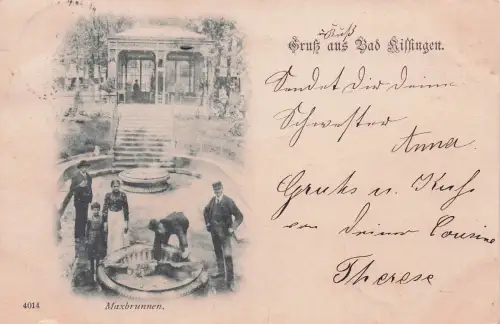 u. Kuß
Gruß aus Bad Kissingen.
Sendet Dir Deine
Schwester
Anna.
Gruß u. Kuß
von Deiner Cousine
Therese
4014
Maxbrunnen.